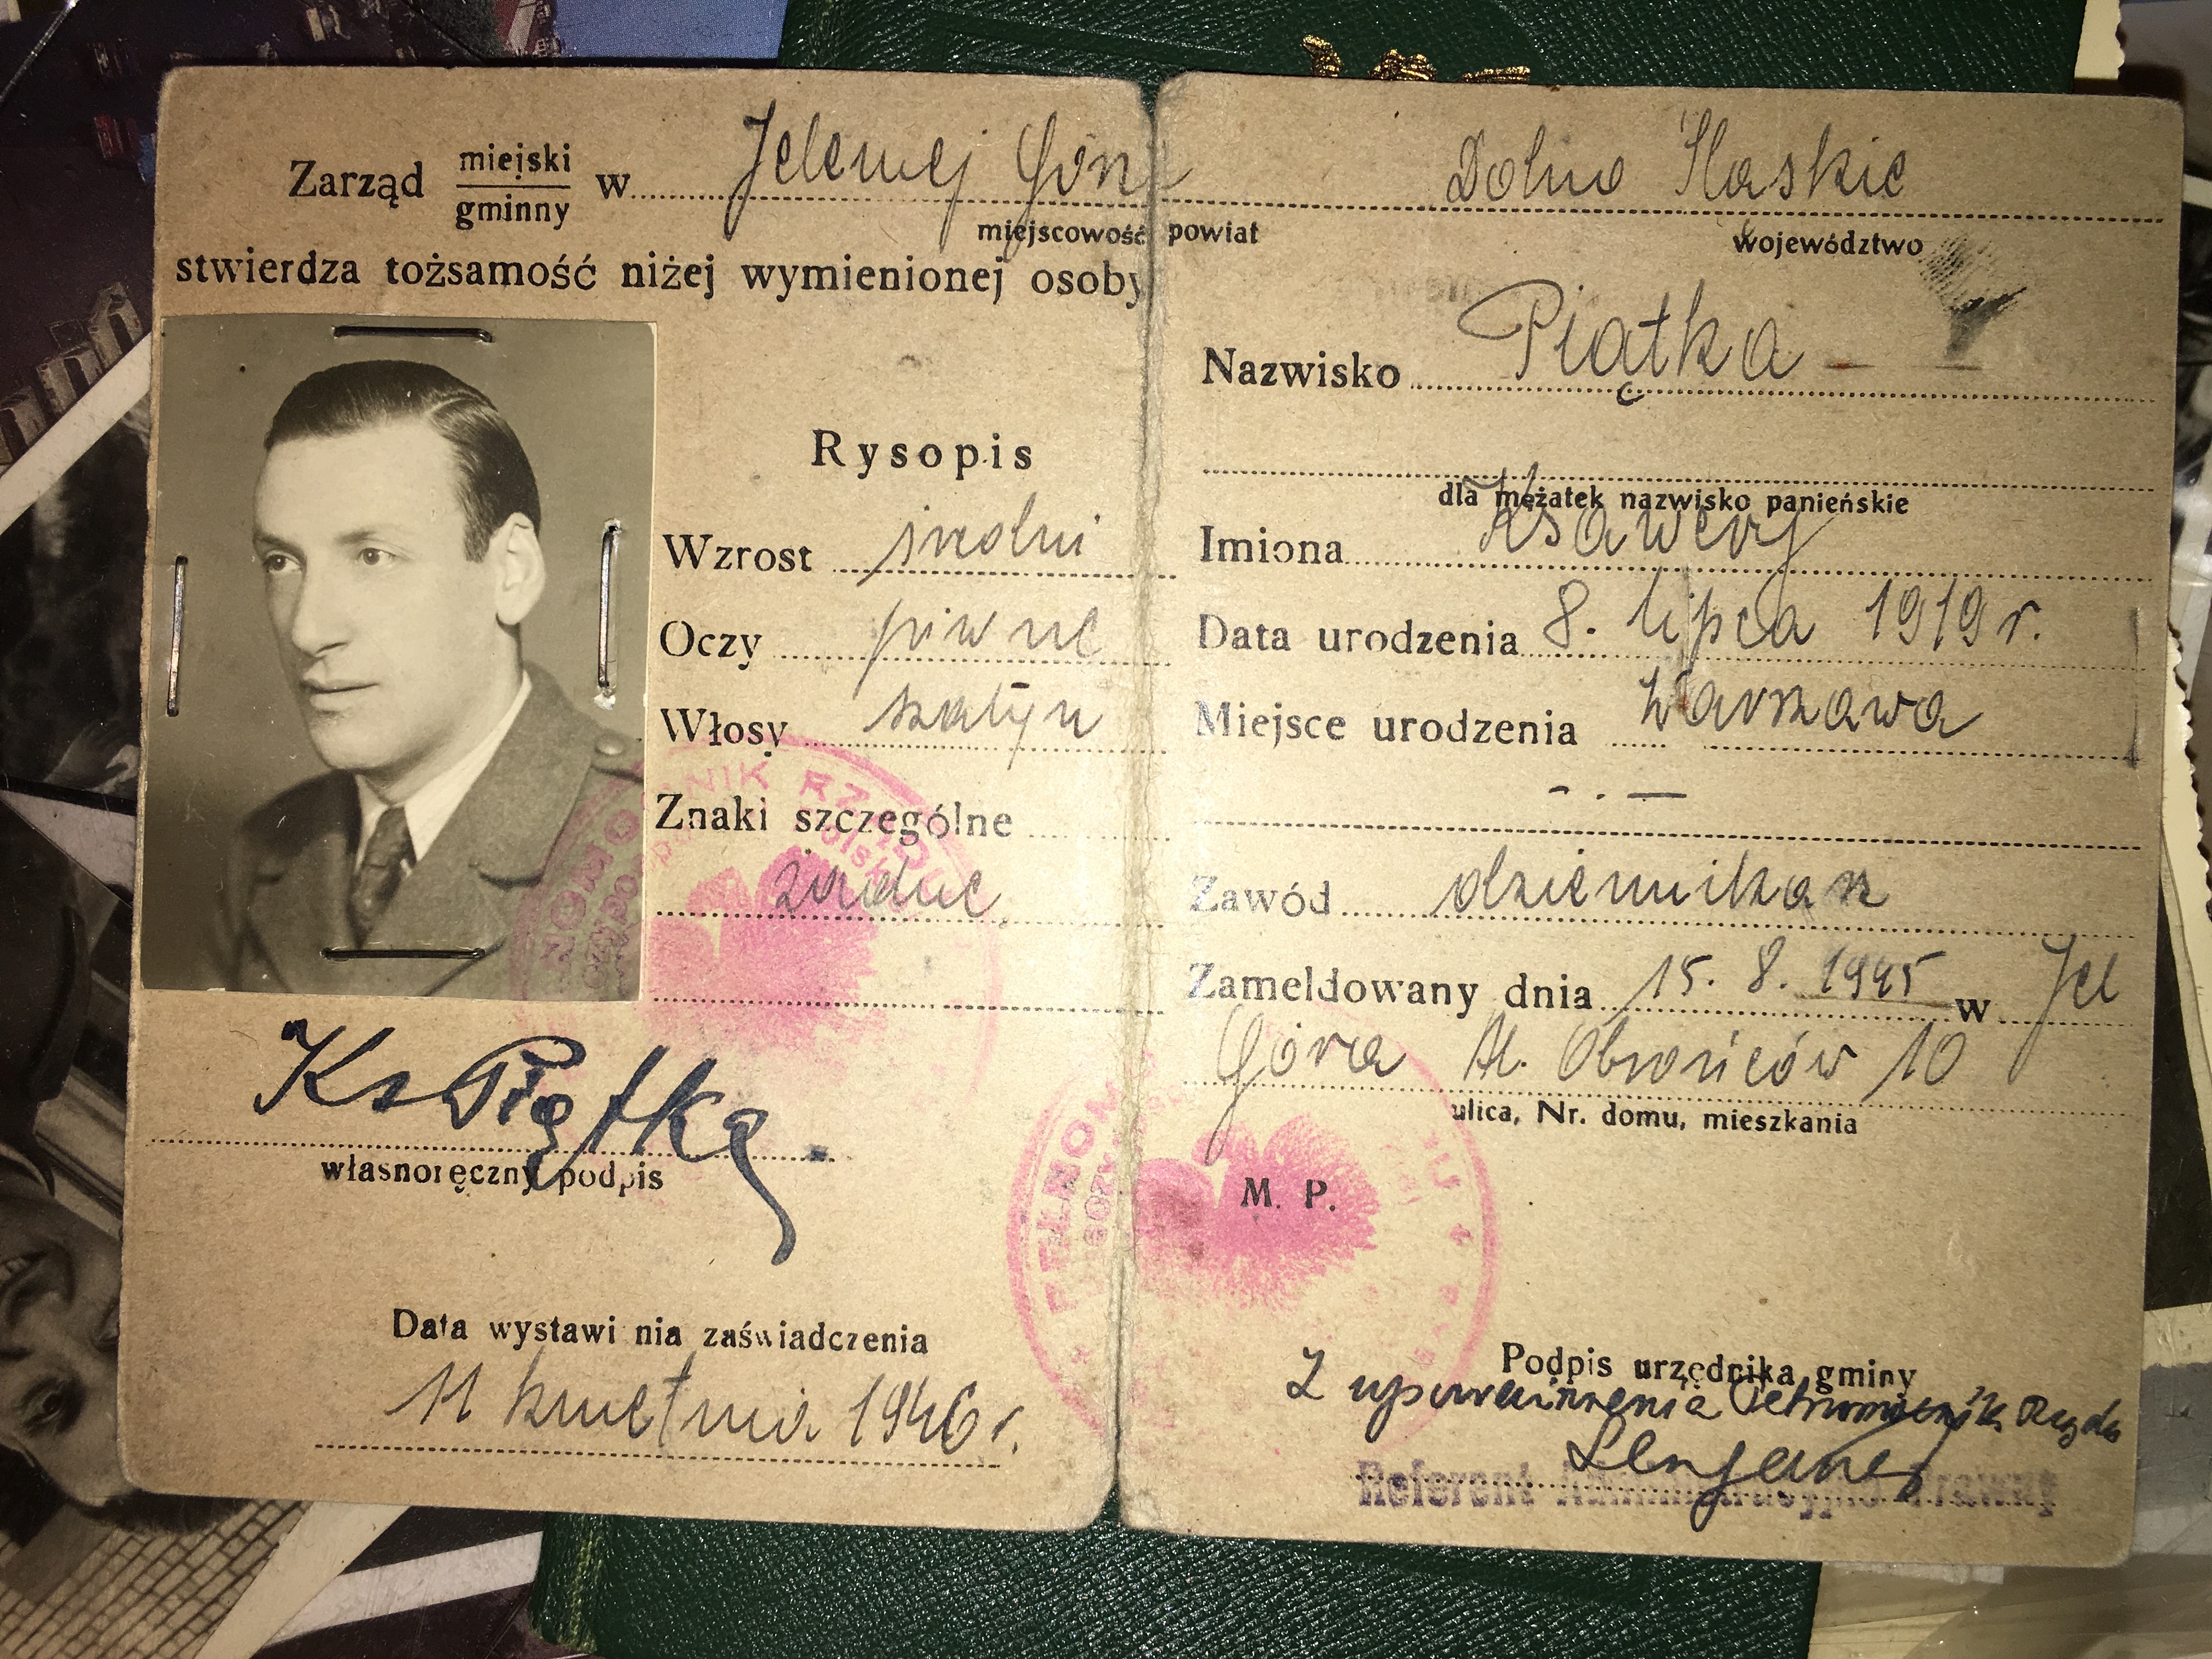 Zarząd miejski gminny w Jeleniej Górze Dolno Śląskie
miejscowość powiat województwo
stwierdza tożsamość niżej wymienionej osoby
Rysopis
Wzrost średni
Oczy piwne
Włosy szatyn
Znaki szczególne
żadne
Ks Piątka
własnoręczny podpis
Data wystawienia zaświadczenia
11 kwietnia 1946 r.
Nazwisko Piątka
dla mężatek nazwisko panieńskie
Imiona Ksawery
Data urodzenia 8. lipca 1919 r.
Miejsce urodzenia Warszawa
Zawód dziennikarz
Zameldowany dnia 15. 8. 1945 w Jel
Góra Al. Obrońców 10
ulica, Nr. domu, mieszkania
M. P.
Podpis urzędnika gminy
Z upoważnienia Pełnomocnika Rządu
Referent Administracyjno Prawny